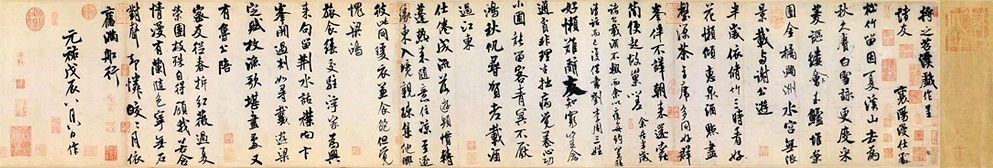 將之苕溪戲作呈
諸友 襄陽漫仕黻
松竹留因夏溪山去為
秋久賡白雪詠更度采
菱謳縷玉鱸堆案
團金橘滿洲水宮無限
景載與謝公遊
半歲依修竹三時看好
花懶傾惠泉酒點盡
壑源茶主席多同好群
峰伴不譁朝來還蠹
簡便起故巢嗟
余居半歲諸公
載酒不輟而余以疾每約置膳
清話而已復借書劉李周三姓
好懶難辭友知窮豈念
通貧非理生拙病覺養心功
小圃能留客青冥不厭
鴻秋帆尋賀老載酒
過江東
仕倦成流落遊頻慣轉
蓬熱來隨意住涼至逐
緣東入境親疏集他鄉
彼此同暖衣兼食飽但覺
愧梁鴻
旅食緣交駐浮家為興
來句留荊水話襟向卞
峰開過剡如尋戴遊梁
定賦枚漁歌堪畫處又
有魯公陪
密友從春拆紅薇過夏
榮團枝殊自得顧我若含
情漫有蘭隨色寧無石
對聲却憐皎皎月依
舊滿船行
元祐戊辰八月八日作